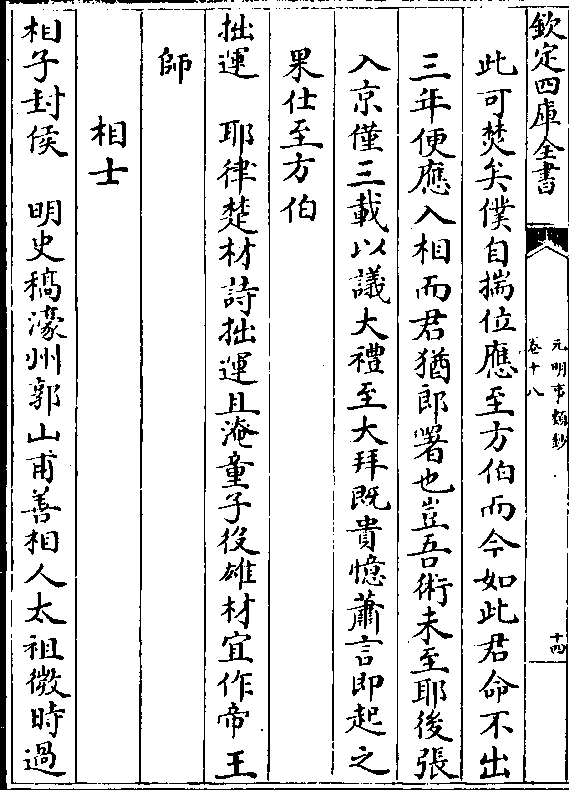 欽定四庫全書
元明事類鈔
卷十八
十四
此可焚矣僕自揣位應至方伯而今如此君命不出
三年便應入相而君猶郎署也豈吾術未至耶後張
入京僅三載以議大禮至大拜既貴憶蕭言即起之
果仕至方伯
拙運　耶律楚材詩拙運且淹童子役雄材宜作帝王
師
相士
相子封侯　明史稿濠州郭山甫善相人太祖微時過